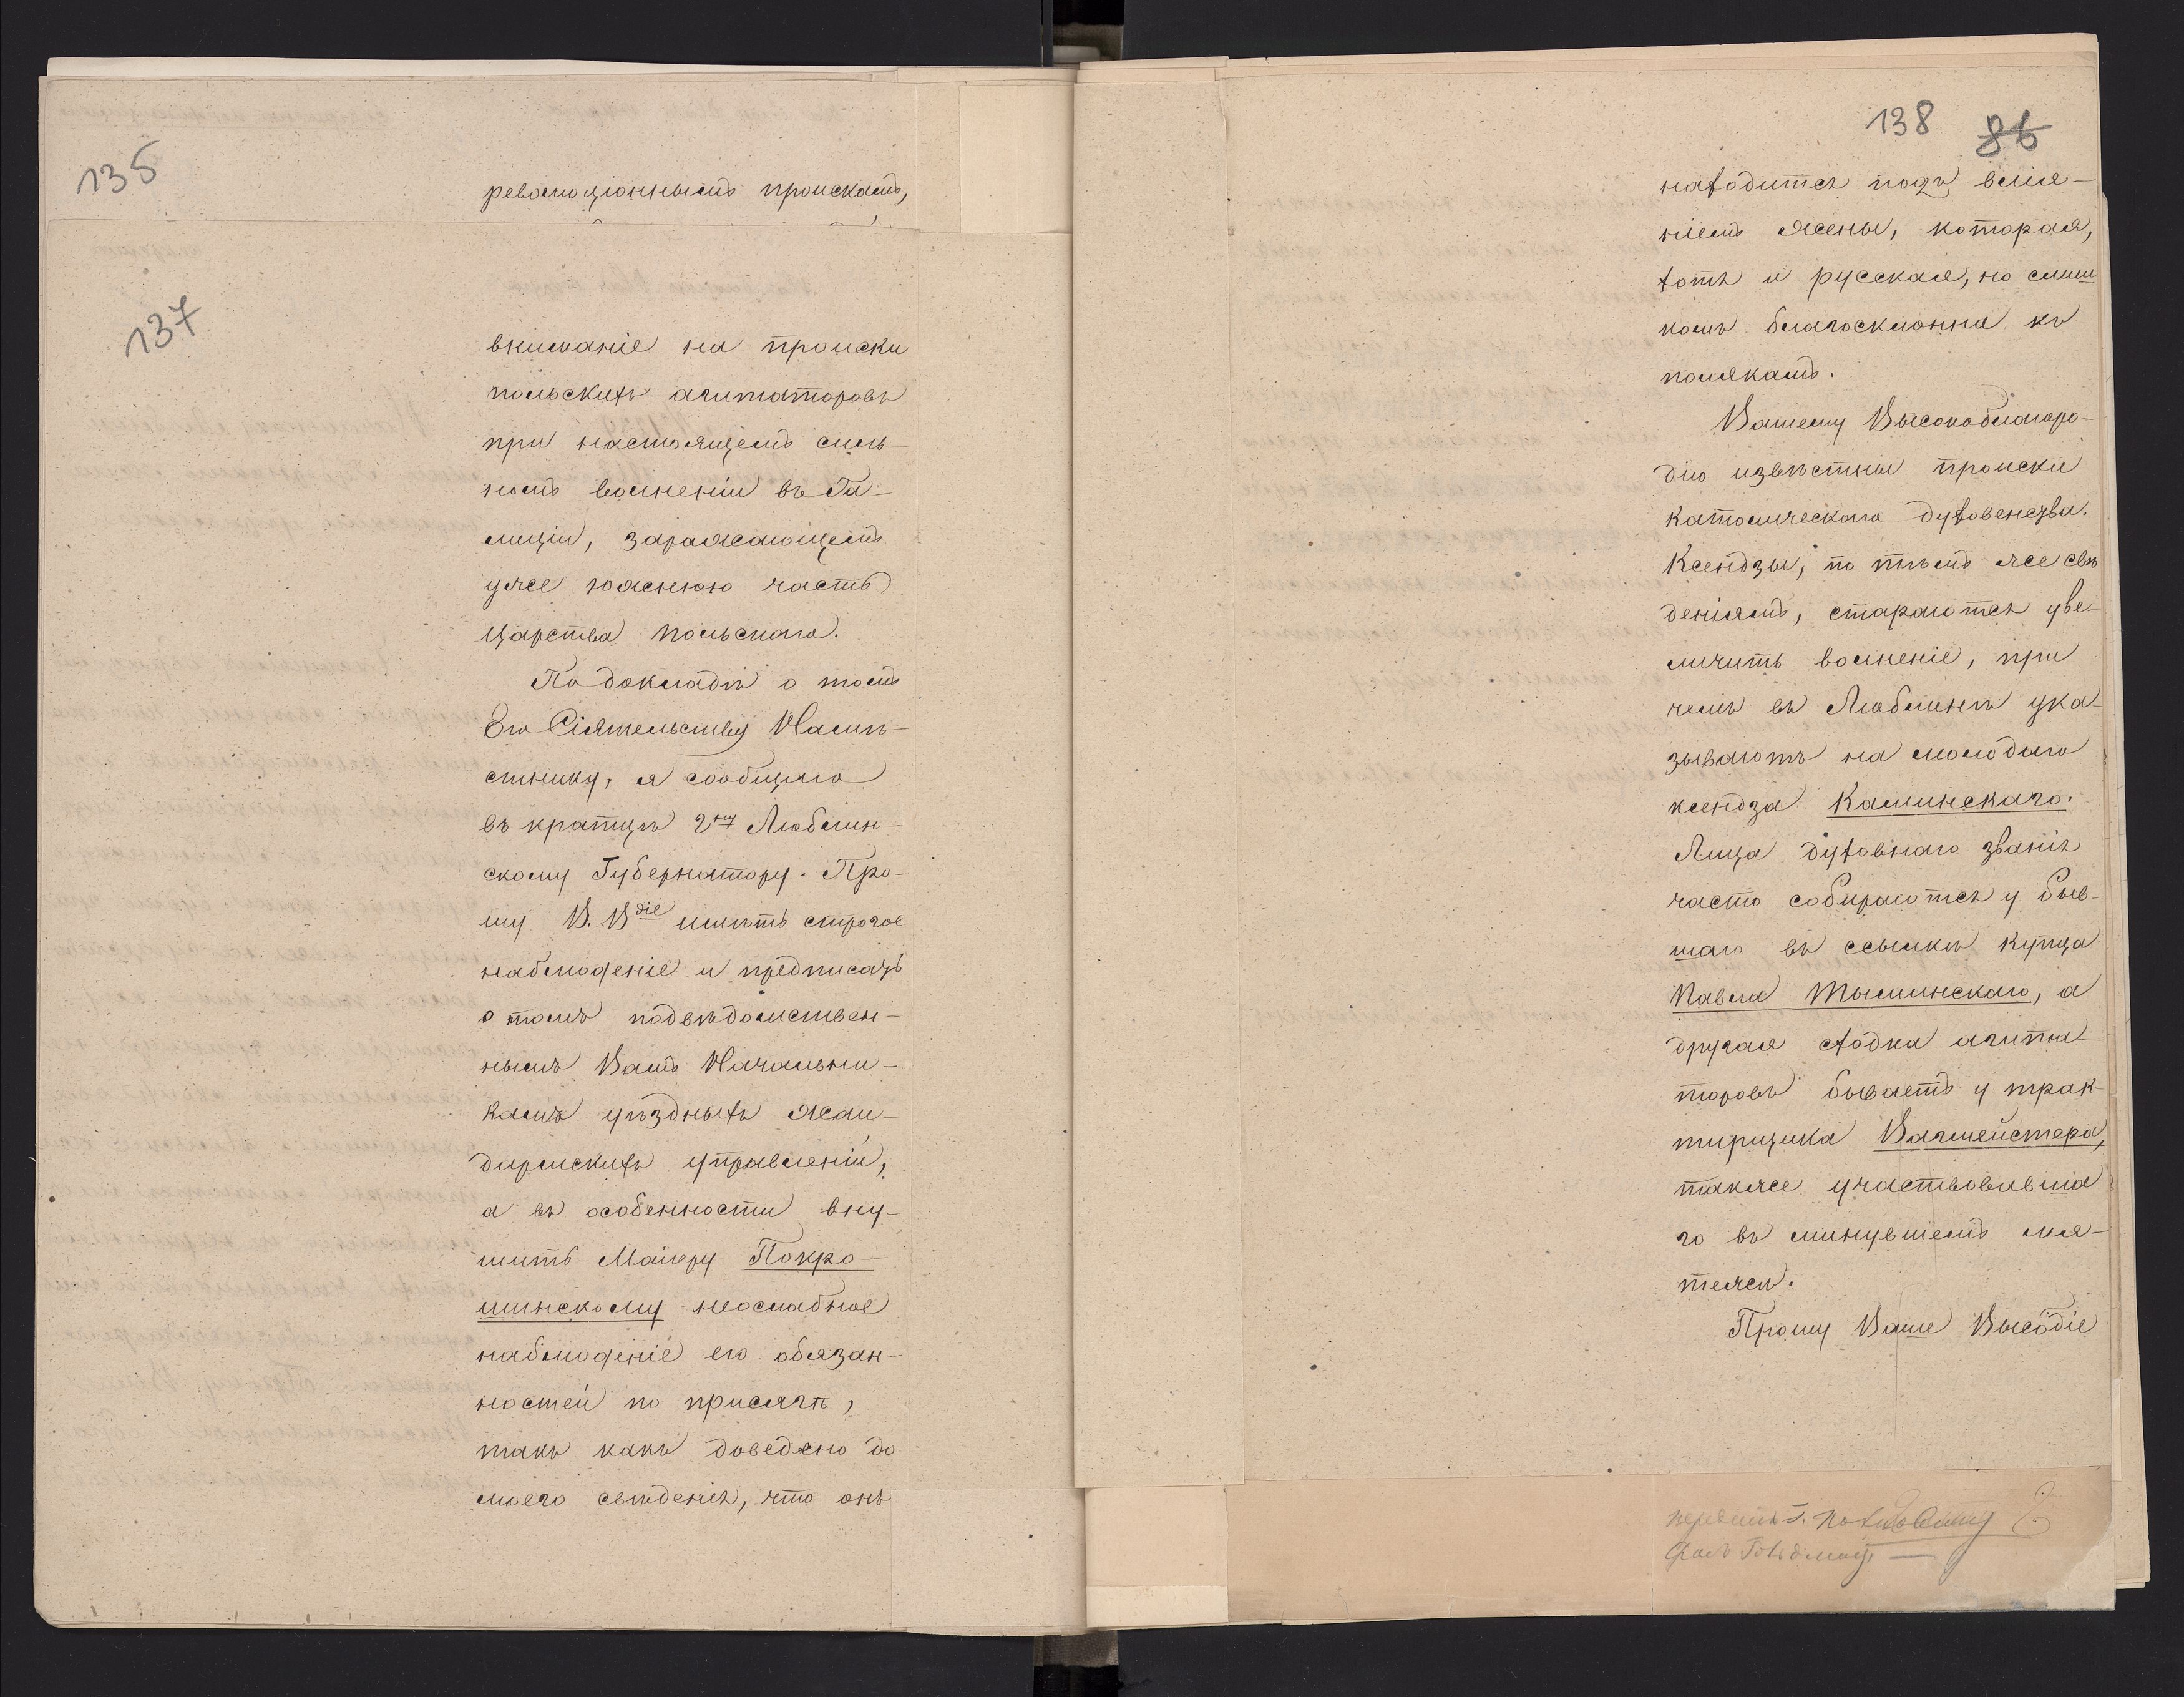 135
революціоннымъ происками,
137
вниманіе на происки
польскихъ агитаторовъ
при настоящемъ силь-
номъ волненіи въ Га-
лиціи, заражающемъ
уже южную часть
Царства Польскаго.
По докладѣ о томъ
Его Сіятельству Намѣ-
стнику, я сообщаю
въ кратцѣ Гну Люблин-
скому Губернатору. Про-
шу В. Вдіе имѣть строгое
наблюденіе и предписать
о томъ подвѣдомствен-
нымъ Вамъ Начальни-
камъ уѣздныхъ жан-
дармскихъ управленій,
а въ особенности вну-
шить Маіору Покро-
шинскому неослабное
наблюденіе его обязан-
ностей по присягѣ,
такъ какъ доведено до
моего свѣденія, что онъ
138 86
находится подъ влія-
ніемъ жены, которая,
хотя и русская, но слиш
комъ благосклонна къ
полякамъ.
Вашему Высокоблагоро-
дію извѣстны происки
католическаго духовенства.
Ксендзы, по тѣмъ же свѣ
деніямъ, стараются уве-
личить волненіе, при
чемъ въ Люблинѣ ука-
зываютъ на молодаго
ксендза Калинскаго.
Лица духовнаго званія
часто собираются у быв-
шаго въ ссылкѣ купца
Павла Тылинскаго, а
другая сходка агита-
торовъ бываетъ у трак-
тирщика Вагмейстера,
также участвовавша
го въ минувшемъ мя-
тежѣ.
Прошу Ваше Высодіе